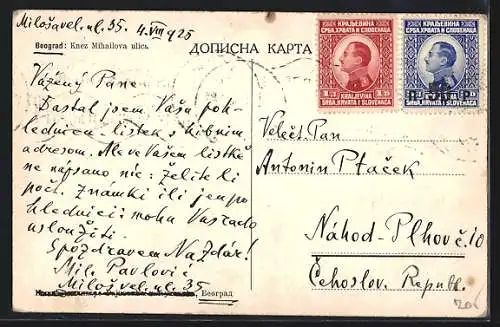 Milošavel. ul. 35. 4.VIII 925
Beograd: Knez Mihailova ulica.
ДОПИСНА КАРТА
КРАЉЕВИНА
СРБА, ХРВАТА И СЛОВЕНАЦА
KRALJEVINA
SRBA, HRVATA I SLOVENACA
КРАЉЕВИНА
СРБА, ХРВАТА И СЛОВЕНАЦА
SRBA, HRVATA I SLOVENACA
Vážený Pane
Dostal jsem Vašu poh-
lednicu - listek s hibnim
adresom. Ale ve Vašem listkě
ne napsano nic: želite li
pošt. Znamki ili jen po
hlednici; mohu Vas rado
uslužiti.
S pozdravem Na Zdar!
Mil. Pavlović
Milošvel. ul. 35
Београд
Velect. Pan
Antonin Ptaček
Náhod-Plhov č. 10
Čehoslov. Republ.